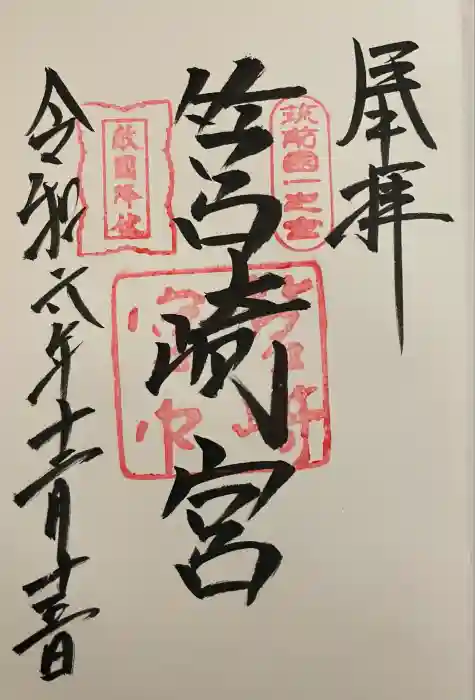 奉拝
筑前國一之宮
筥崎宮
敵國降伏
令和六年十二月十五日